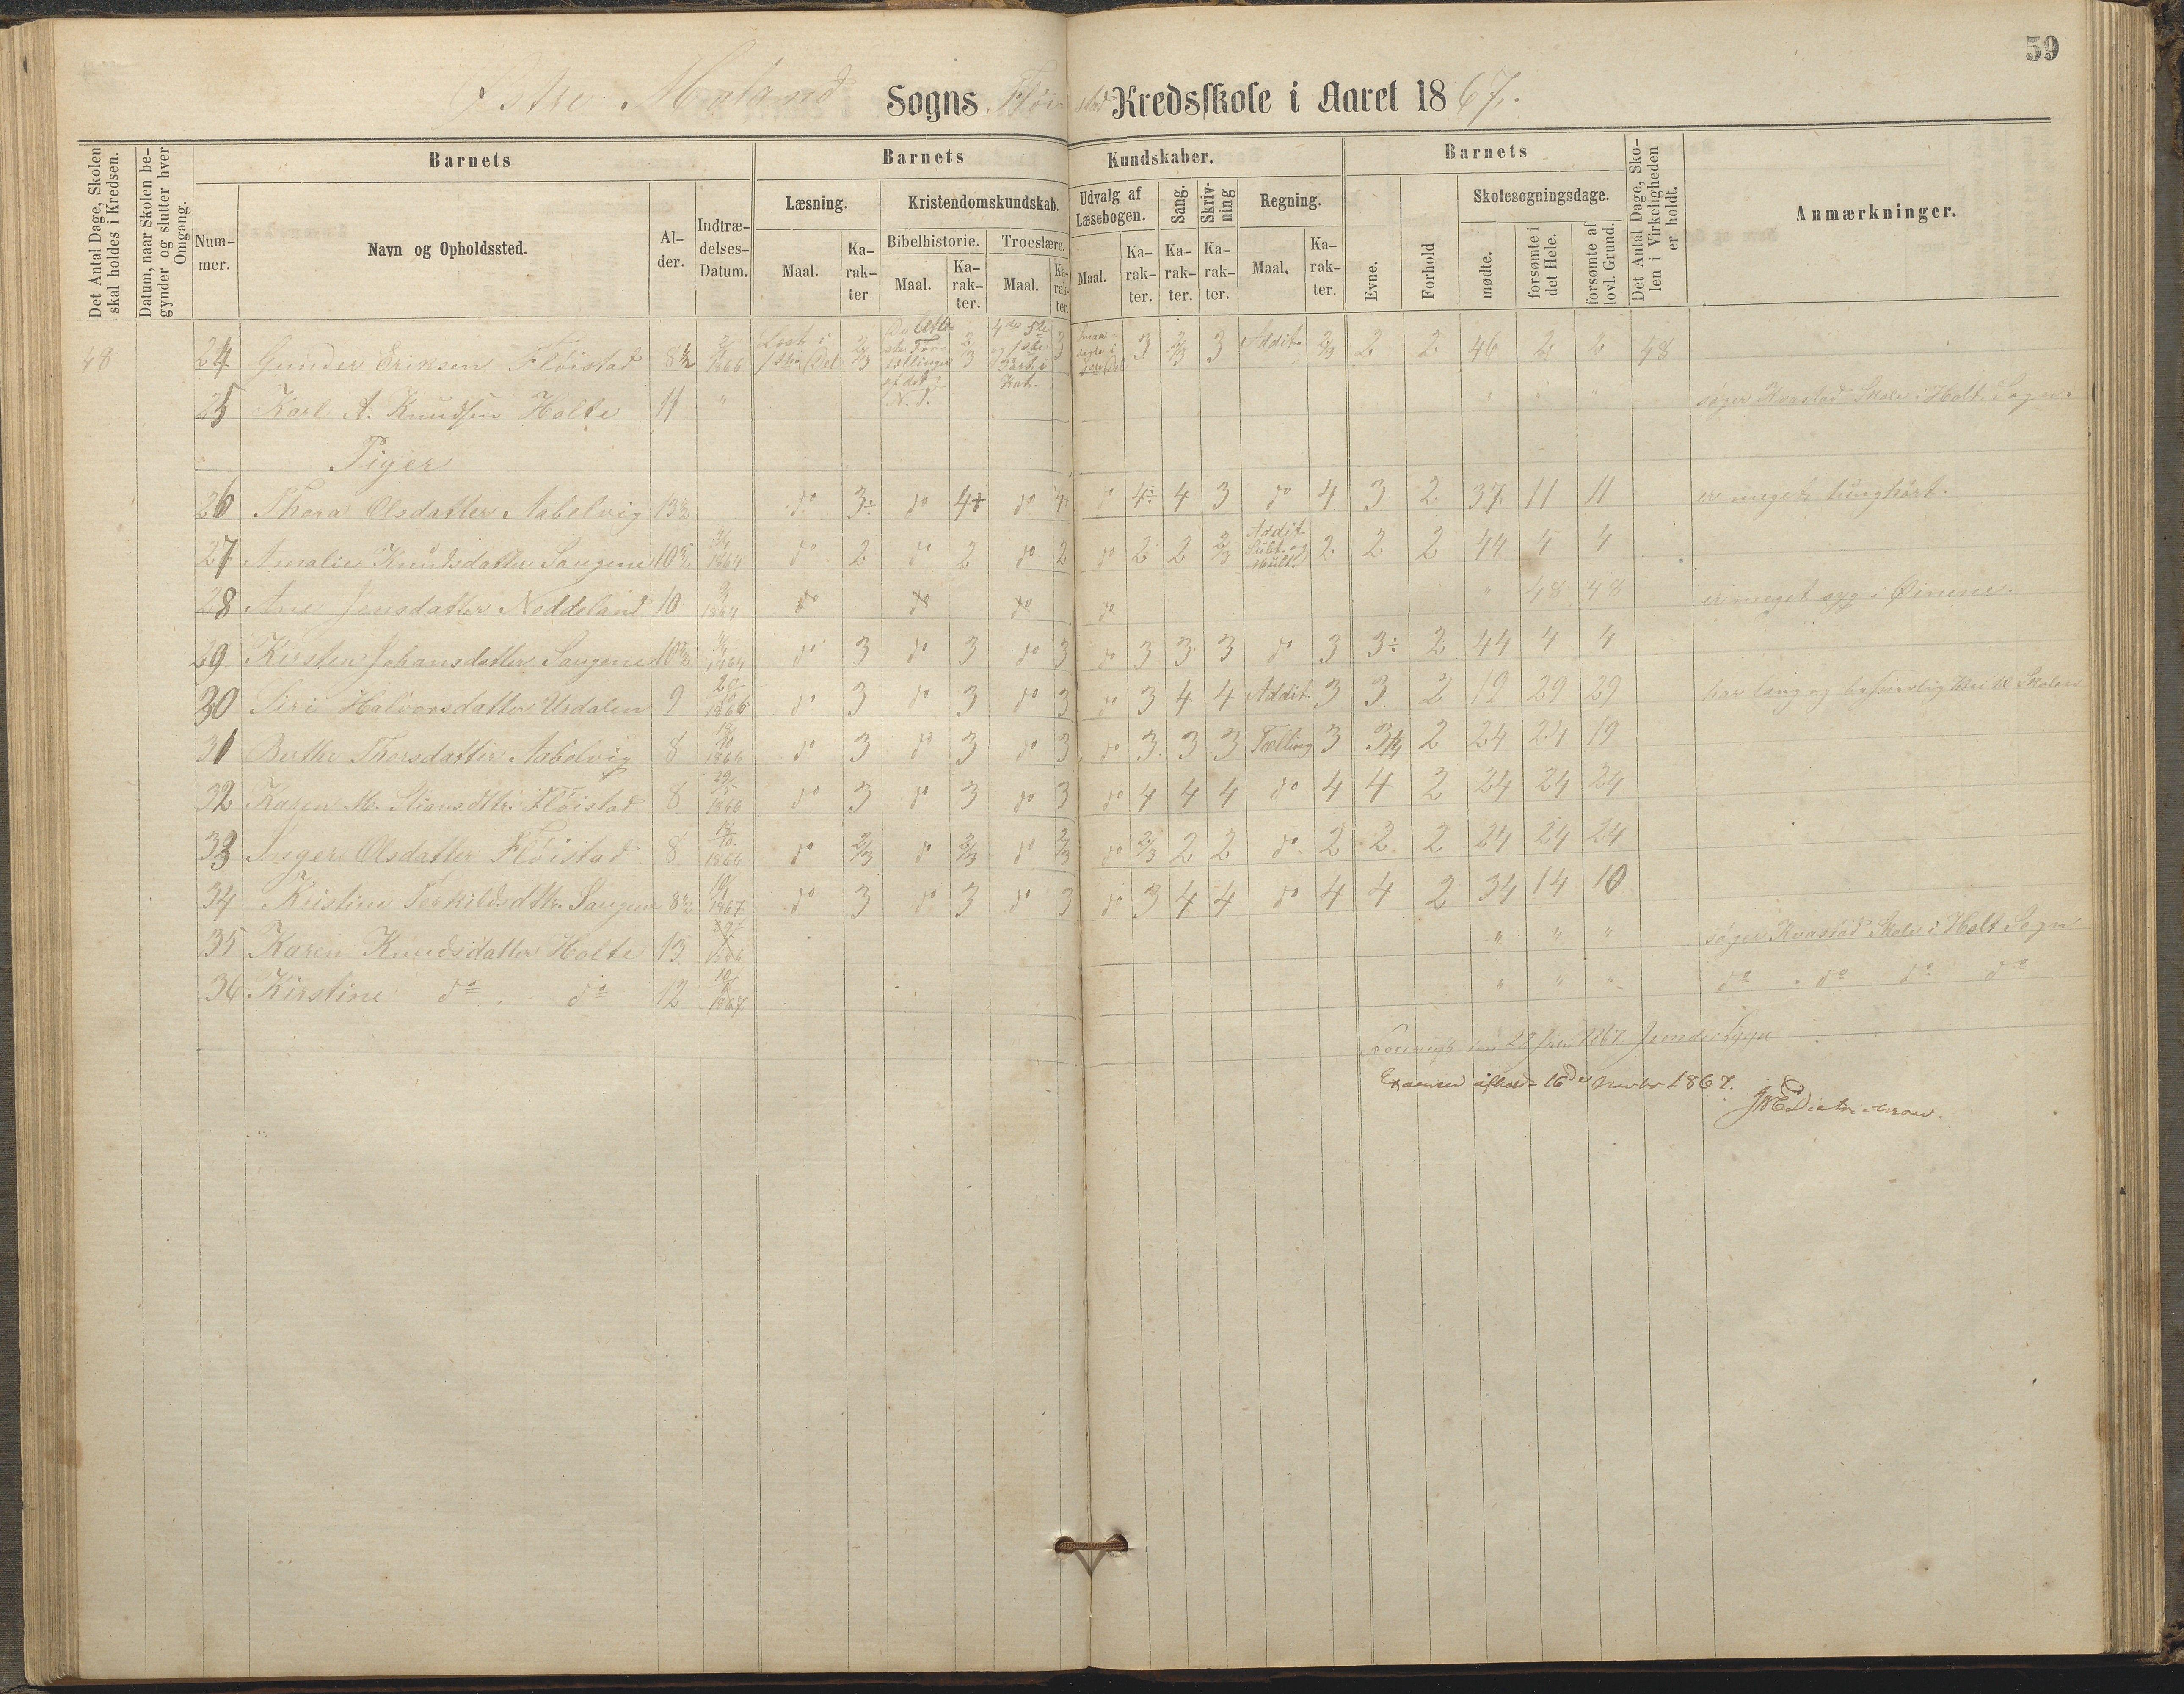 59
Østre Moland Sogns Fløistad Kredsskole i Aaret 1867.
Det Antal Dage, Skolen skal holdes i Kredsen.
Datum, naar Skolen begynder og slutter hver Omgang.
Barnets
Nummer.
Navn og Opholdssted.
Alder.
Indtrædelses-Datum.
Barnets Kundskaber.
Læsning.
Maal.
Karakter.
Kristendomskundskab.
Bibelhistorie.
Maal.
Karakter.
Troeslære.
Maal.
Karakter
Udvalg af Læsebogen.
Maal.
Karakter.
Sang.
Karakter.
Skrivning
Karakter.
Regning.
Maal.
Karakter.
Barnets
Evne.
Forhold
Skolesøgningsdage.
mødte.
forsømte i det Hele.
forsømte af lovl. Grund.
Det Antal Dage, Skolen i Virkeligheden er holdt.
Anmærkninger.
48 24 Gunder Eriksen Fløistad 8½ 1866 Læst i 1ste Del 2/3 2/3 3 3 2/3 3 Addit. 2/3 2 2 46 2 2 48
25 Karl A. Knudsen Holte 11 " " " søger Kvastad Skole i Holt Sogn
Piger
26 Thora Olsdatter Aabelvig 13½ do 3÷ do 4+ do 4 do 4÷ 4 3 do 4 3 2 37 11 11 er meget tunghørt.
27 Amalie Knudsdatter Saugene 10½ 1864 do 2 do 2 do 2 do 2 2 2/3 Addit. Subt. og Mult. 2 2 2 44 4 4
28 Ane Jensdatter Noddeland 10 1864 do do do do " 48 48 er meget syg i Øinene.
29. Kirsten Johansdatter Saugene 10½ 1864 do 3 do 3 do 3 do 3 3 3 do 3 3÷ 2 44 4 4
30 Siri Halvorsdatter Urdalen 9 1866 do 3 do 3 do 3 do 3 4 4 Addit. 3 3 2 19 29 29 har lang og besværlig Vei til Skolen
31 Berthe Thorsdatter Aabelvig 8 1866 do 3 do 3 do 3 do 3 3 3 Tælling 3 3/4 2 24 24 19
32 Karen M. Stiansdtr. Fløistad 8 29/5 1866 do 3 do 3 do 3 do 4 4 4 do 4 4 2 24 24 24
33 Inger Olsdatter Fløistad 8 18/10 1866 do 2/3 do 2/3 do 2/3 do 2/3 2 2 do 2 2 2 24 24 24
34 Kristine Terkildsdtr. Saugene 8½ 1867 do 3 do 3 do 3 do 3 4 4 do 4 4 2 34 14 10
35 Karen Knudsdatter Holte 13 " " " søger Kvastad Skole i Holt Sogn
36 Kirstine do do 12 1867 " " " do do do do
Examen afholdt 16de 1867.